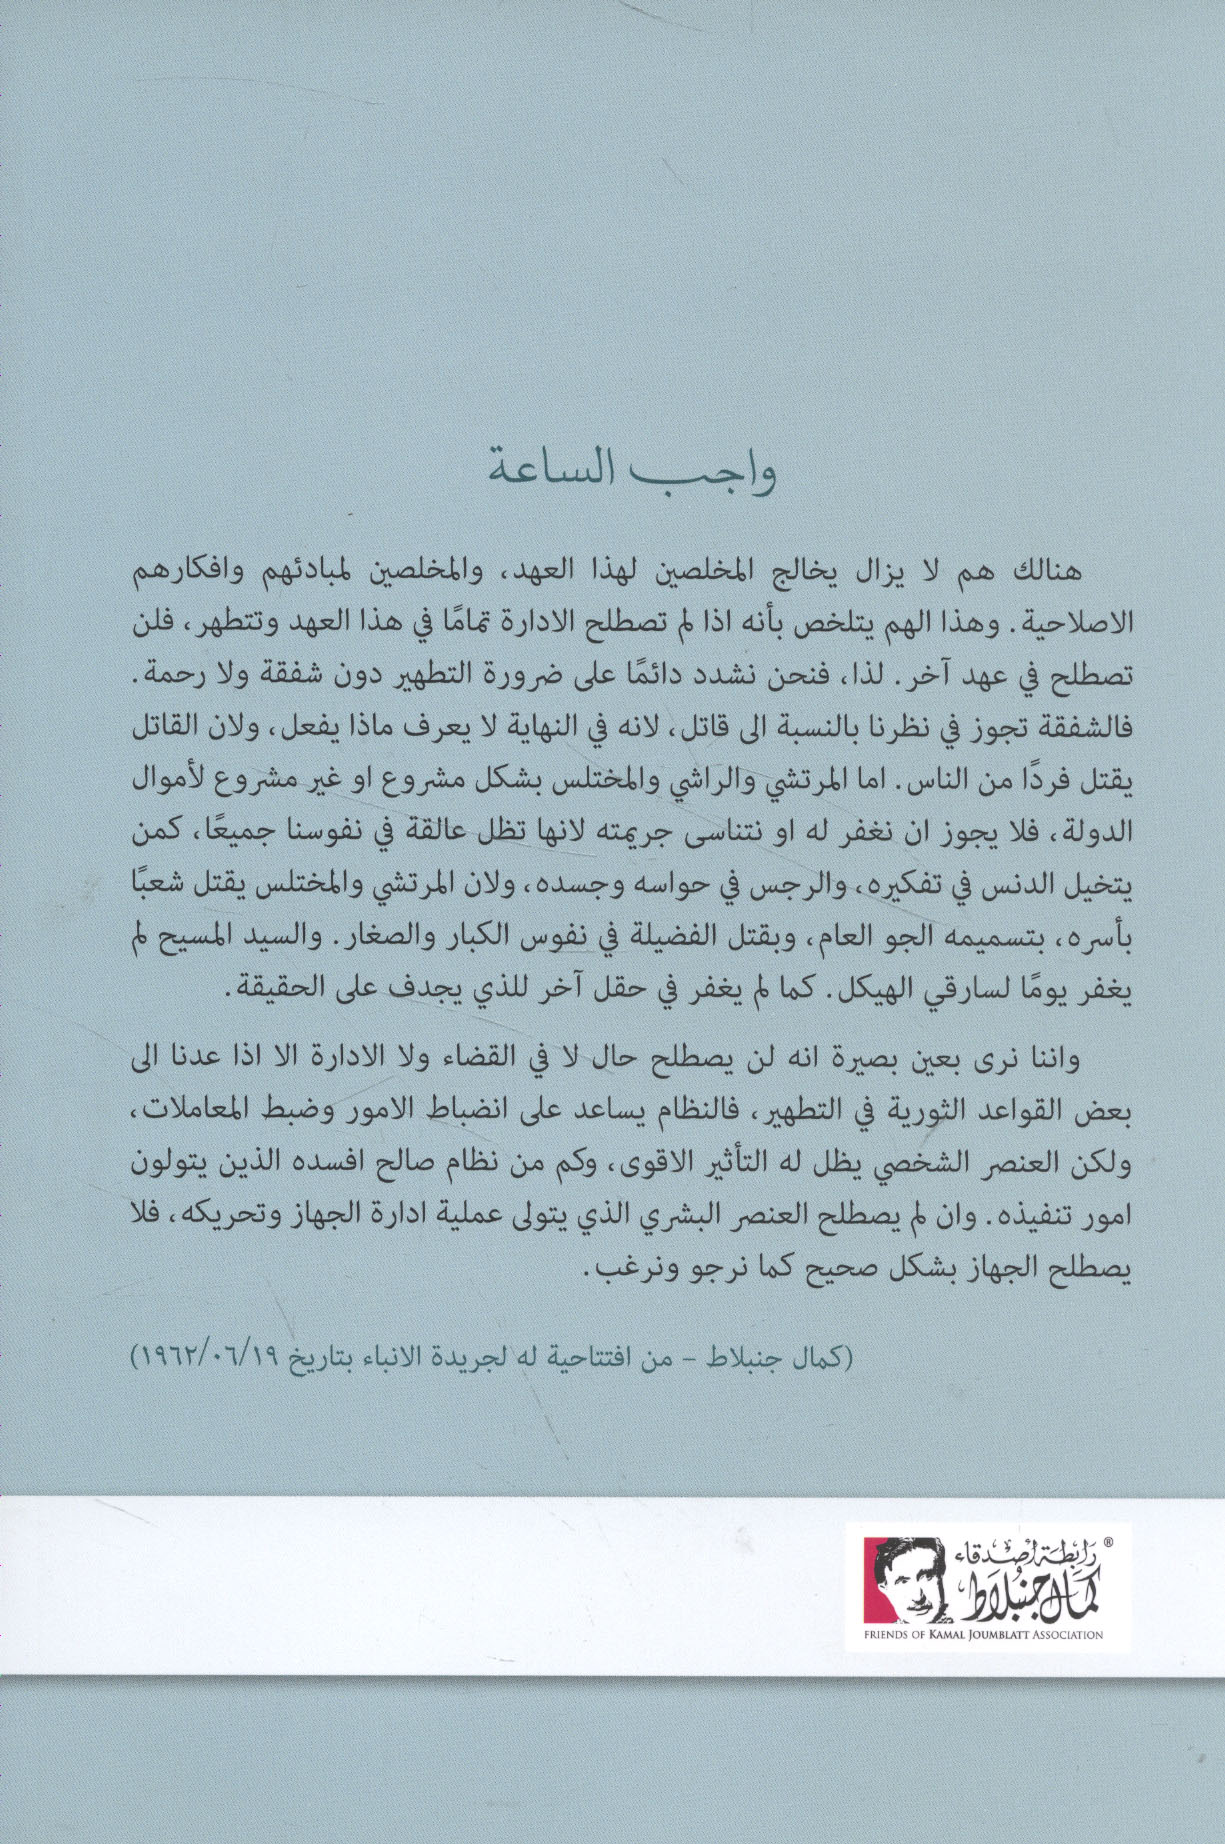 واجب الساعة
هنالك هم لا يزال يخالج المخلصين لهذا العهد، والمخلصين لمبادئهم وافكارهم
الاصلاحية. وهذا الهم يتلخص بأنه اذا لم تصطلح الادارة تمامًا في هذا العهد وتتطهر، فلن
تصطلح في عهد آخر. لذا، فنحن نشدد دائمًا على ضرورة التطهير دون شفقة ولا رحمة.
فالشفقة تجوز في نظرنا بالنسبة الى قاتل، لانه في النهاية لا يعرف ماذا يفعل، ولان القاتل
يقتل فردًا من الناس. اما المرتشي والراشي والمختلس بشكل مشروع او غير مشروع لأموال
الدولة، فلا يجوز ان نغفر له او نتناسى جريمته لانها تظل عالقة في نفوسنا جميعًا، كمن
يتخيل الدنس في تفكيره، والرجس في حواسه وجسده، ولان المرتشي والمختلس يقتل شعبًا
بأسره، بتسميمه الجو العام، وبقتل الفضيلة في نفوس الكبار والصغار. والسيد المسيح لم
يغفر يومًا لسارقي الهيكل. كما لم يغفر في حقل آخر للذي يجدف على الحقيقة.
واننا نرى بعين بصيرة انه لن يصطلح حال لا في القضاء ولا الادارة الا اذا عدنا الى
بعض القواعد الثورية في التطهير، فالنظام يساعد على انضباط الامور وضبط المعاملات،
ولكن العنصر الشخصي يظل له التأثير الاقوى، وكم من نظام صالح افسده الذين يتولون
امور تنفيذه. وان لم يصطلح العنصر البشري الذي يتولى عملية ادارة الجهاز وتحريكه، فلا
يصطلح الجهاز بشكل صحيح كما نرجو ونرغب.
(كمال جنبلاط - من افتتاحية له لجريدة الانباء بتاريخ ١٩/٠٦/١٩٦٢)
رَابِطَة أصْدقَاء ®
كمَال جُنبُلاط
FRIENDS OF KAMAL JOUMBLATT ASSOCIATION